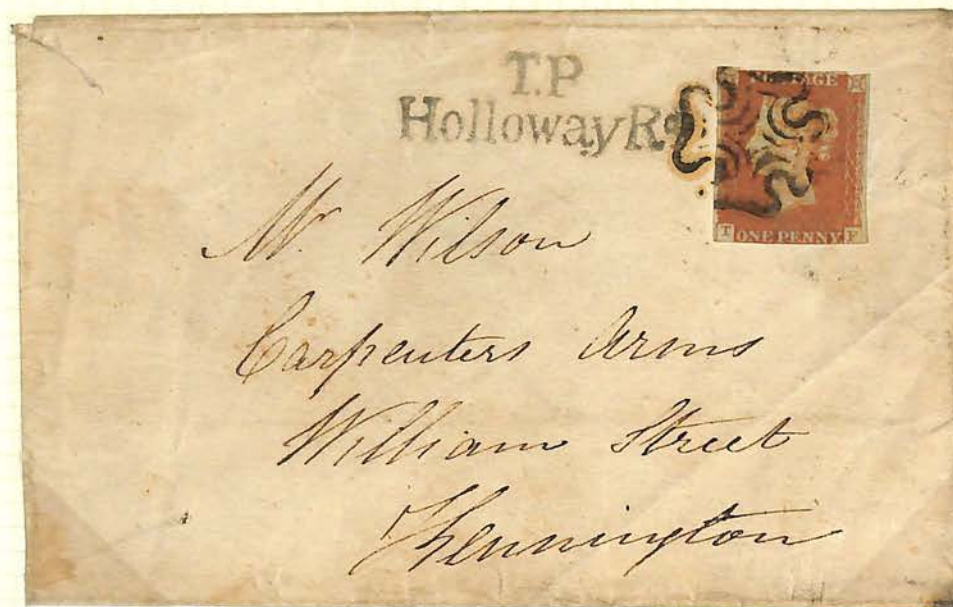 T.P
Holloway Rd
POSTAGE
T ONE PENNY F
Mr Wilson
Carpenters Arms
William Street
Kennington